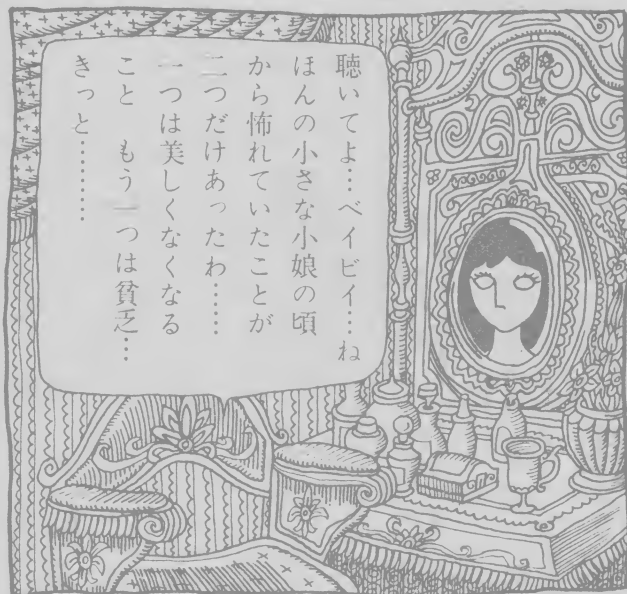 聴いてよ…ベイビイ…ね
ほんの小さな小娘の頃
から怖れていたことが
二つだけあったわ……
一つは美しくなくなる
こと　もう一つは貧乏…
きっと………